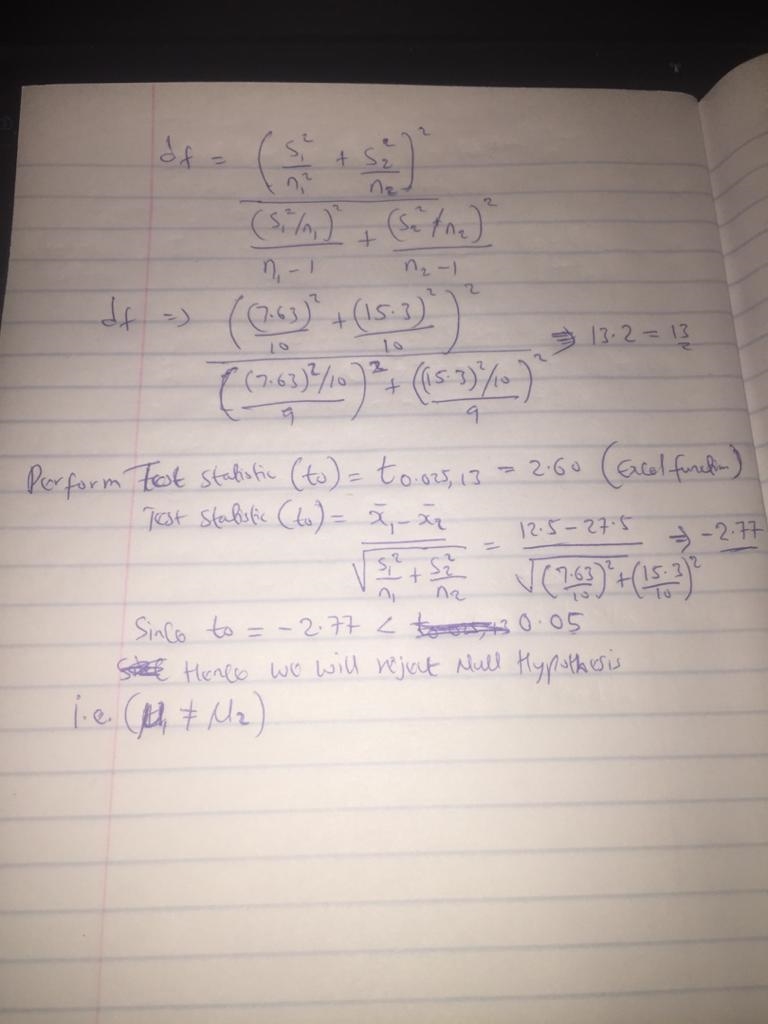 df = (s₁²/n₁² + s₂²/n₂)² / ((s₁²/n₁)²/(n₁-1) + (s₂²/n₂)²/(n₂-1))
df => ((7.63)²/10 + (15.3)²/10)² / (((7.63)²/10)²/9 + ((15.3)²/10)²/9) => 13.2 = 13
Perform Test Statistic (to) = t0.025,13 = 2.60 (Excel function)
Test Statistic (to) = x̄₁ - x̄₂ / √(s₁²/n₁ + s₂²/n₂) = 12.5 - 27.5 / √((7.63/10)² + (15.3/10)²) => -2.77
Since to = -2.77 < 0.05
Hence we will reject Null Hypothesis
i.e. (μ₁ ≠ μ₂)